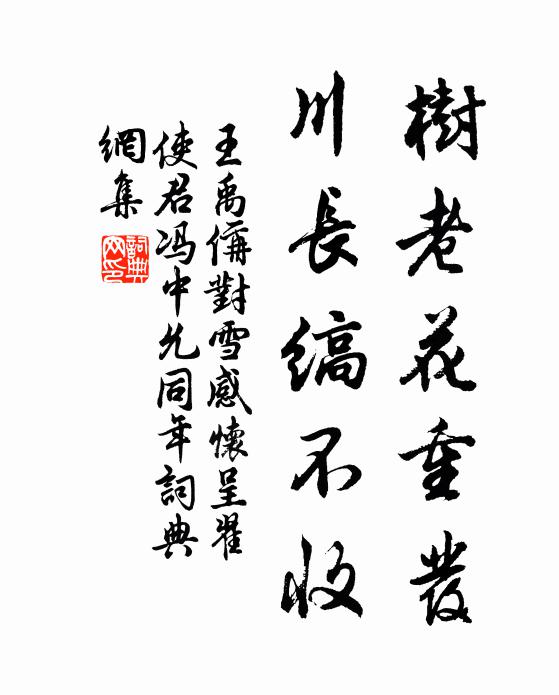 樹老花重發
川長縞不收
王禹偁對雪感懷呈翟
使君馮中允同年詞典
網集
詞典
网印